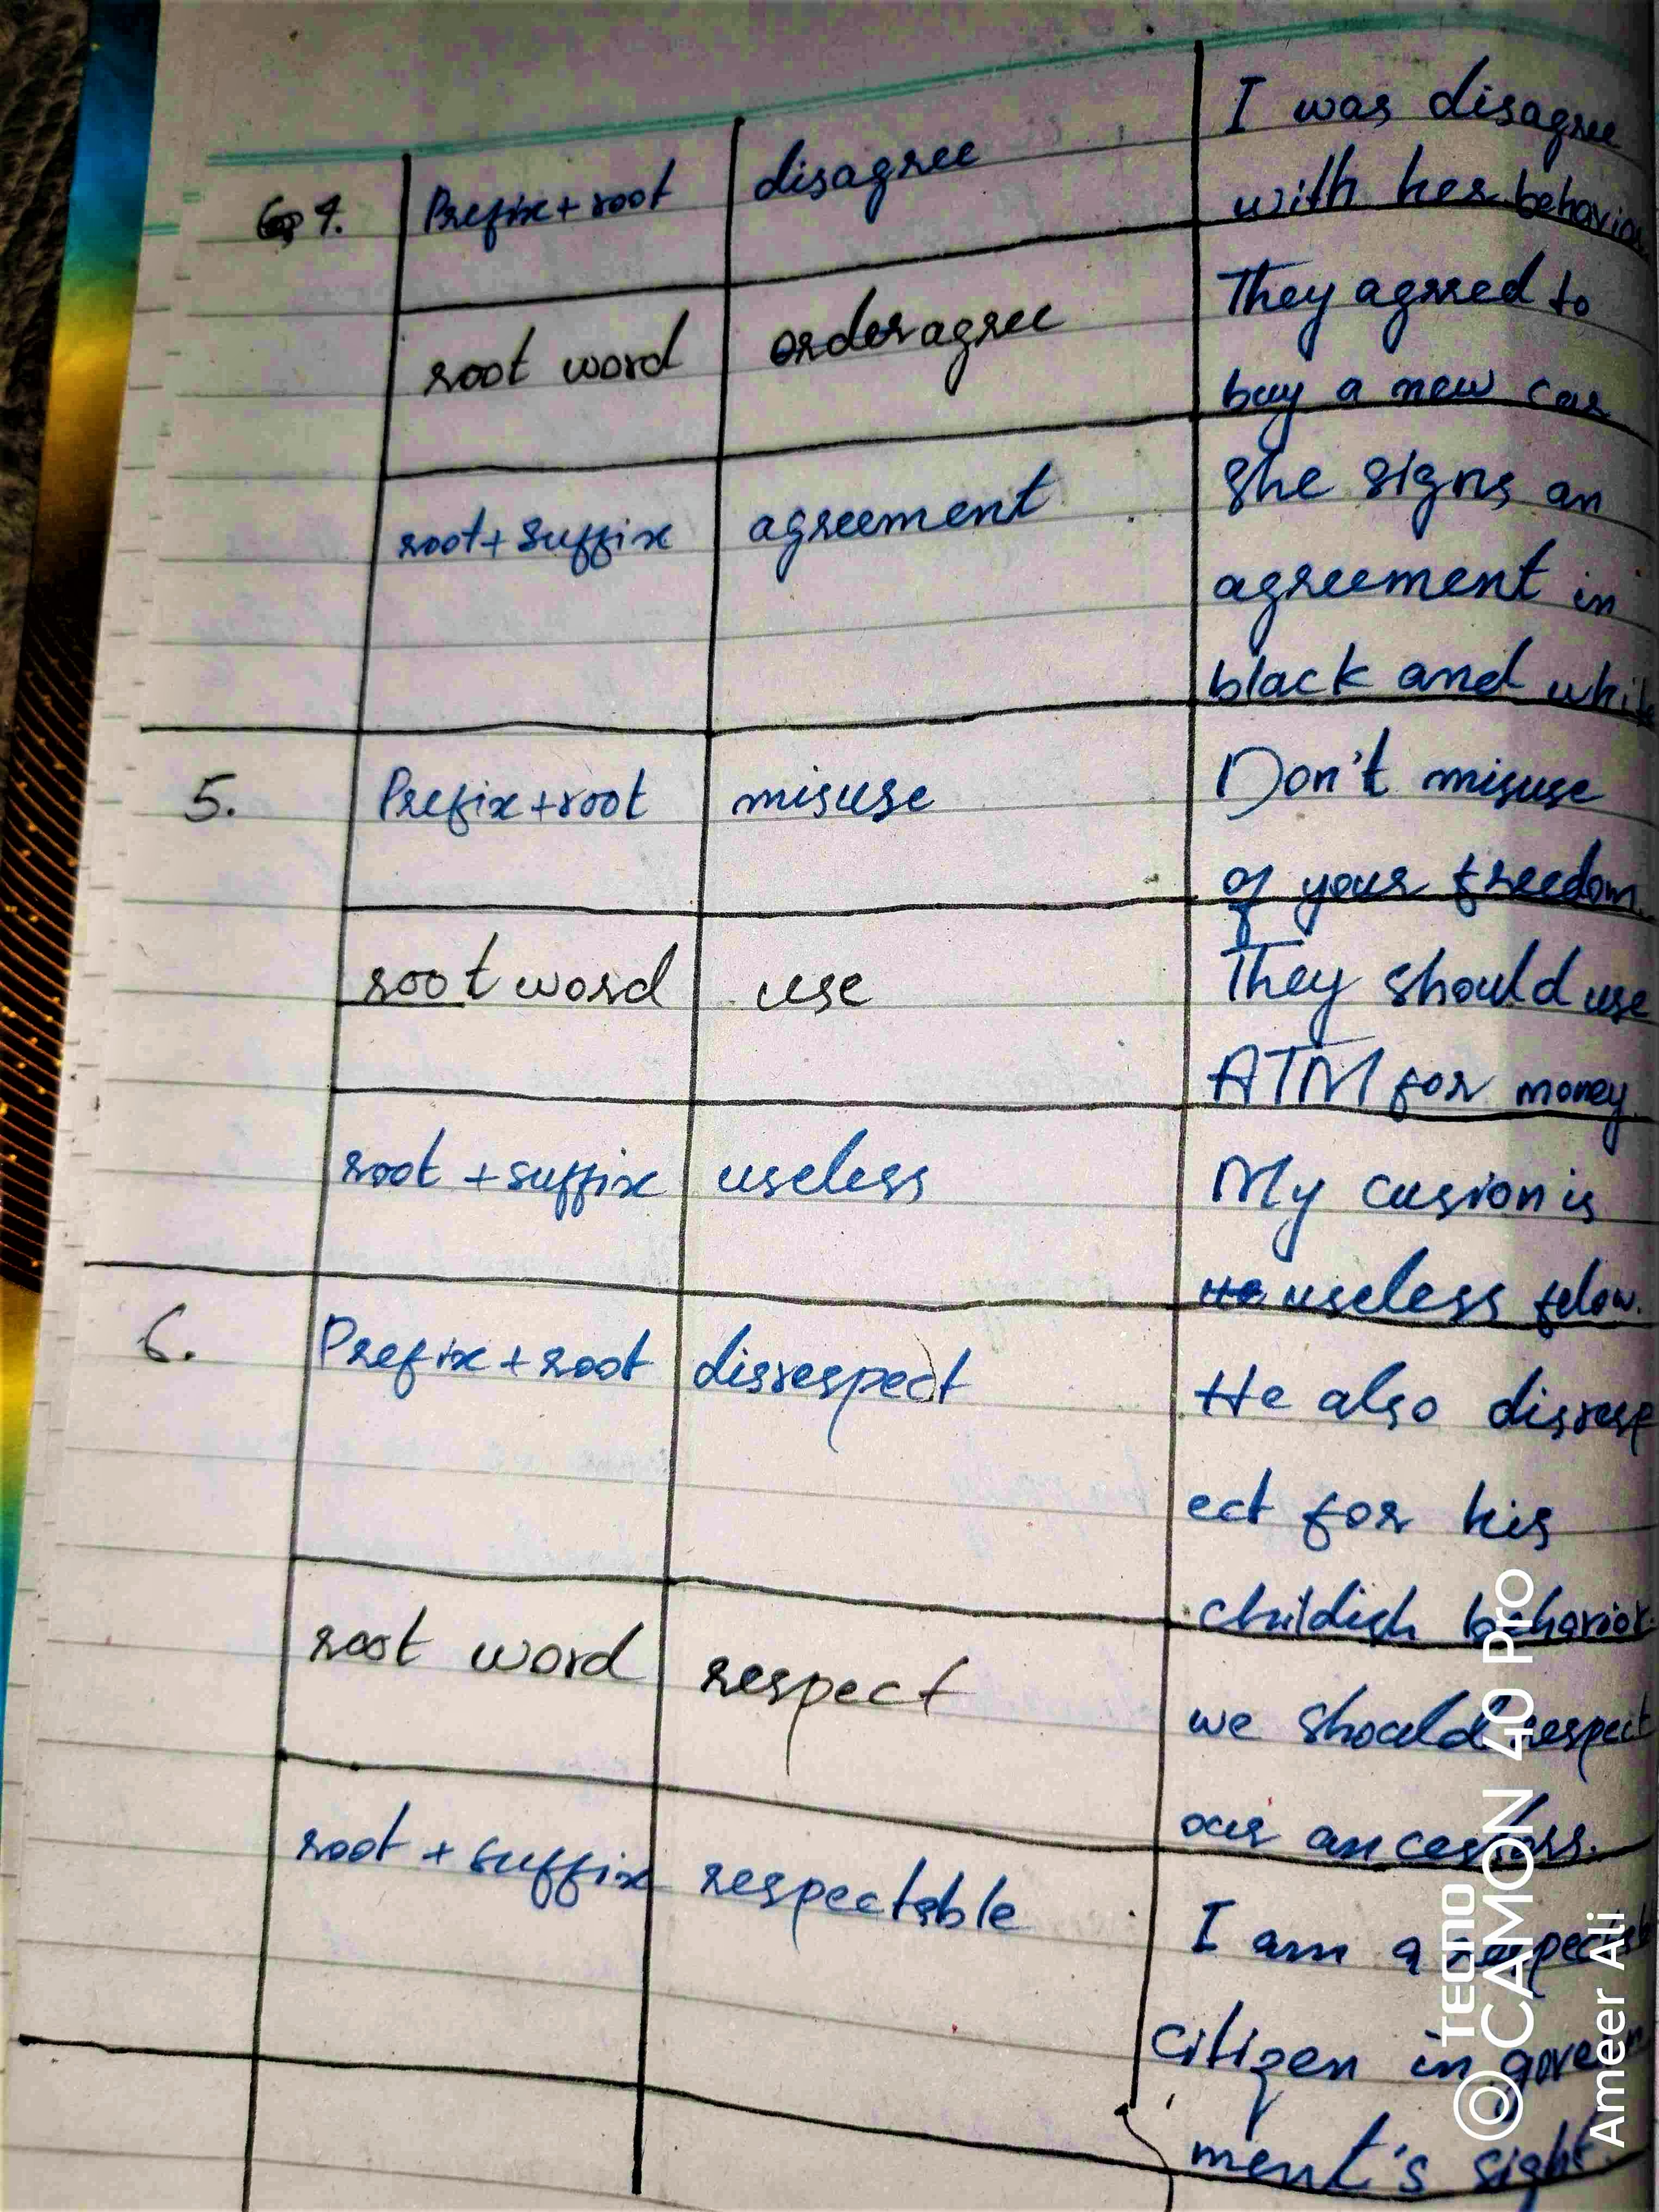 4. Prefix + root disagree I was disagree
with her behavior
root word agree They agreed to
buy a new car
root + suffix agreement She signs an
agreement in
black and white
5. Prefix + root misuse Don't misuse
of your freedom.
root word use They should use
ATM for money.
root + suffix useless My cusion is
useless felow.
6. Prefix + root disrespect He also disresp
ect for his
childish behavior.
root word respect we should respect
our ancestors.
root + suffix respectable I am a
citizen in govern
ment's sight.
TECNO
CAMON 40 PRO
Ameer Ali